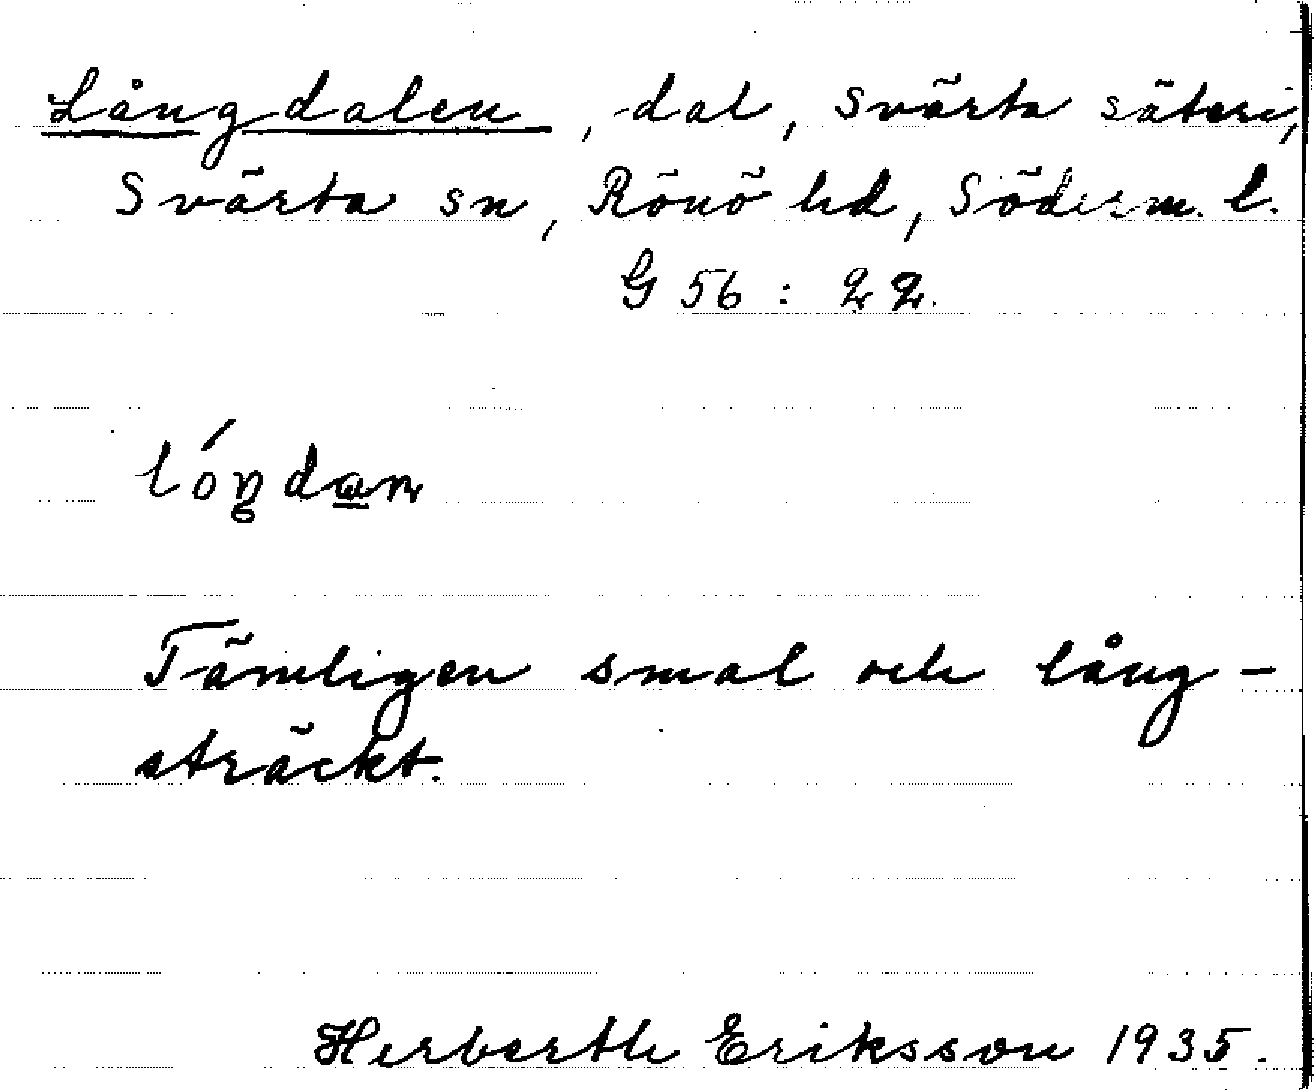 Långdalen, dal, Svärta säteri,
Svärta sn, Rönö hd, Söderm. l.
G 56 : 22.
lóŋdan
Tämligen smal och lång-
sträckt.
Herberth Eriksson 1935.